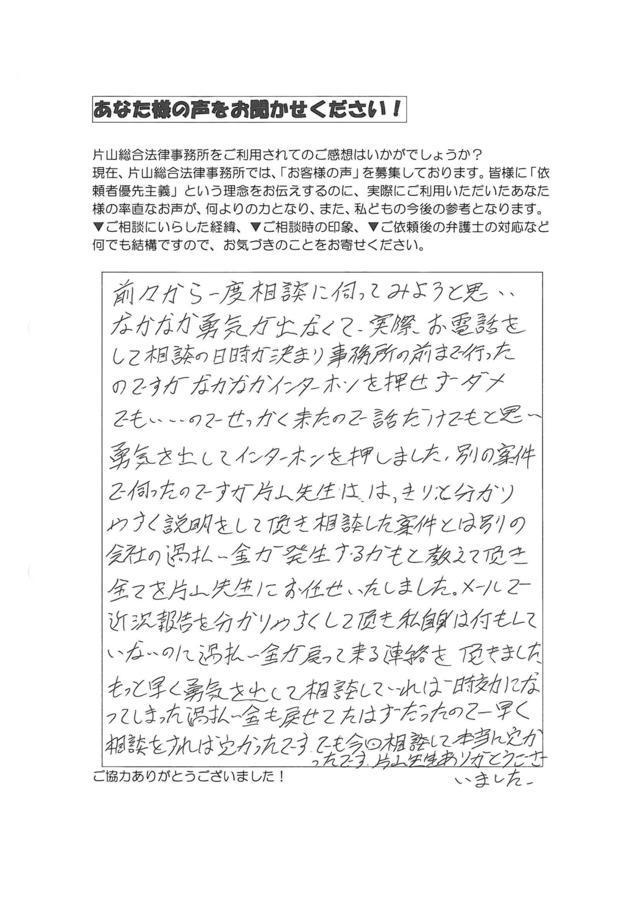 あなた様の声をお聞かせください！
片山総合法律事務所をご利用されてのご感想はいかがでしょうか？
現在、片山総合法律事務所では、「お客様の声」を募集しております。皆様に「依
頼者優先主義」という理念をお伝えするのに、実際にご利用いただいたあなた
様の率直なお声が、何よりの力となり、また、私どもの今後の参考となります。
▼ご相談にいらした経緯、▼ご相談時の印象、▼ご依頼後の弁護士の対応など
何でも結構ですので、お気づきのことをお寄せください。
前々から一度相談に伺ってみようと思い、
なかなか勇気が出なくて、実際、お電話を
して相談の日時が決まり事務所の前まで行った
のですが なかなかインターホンを押せず ダメ
でもいいので せっかく来たので 話だけでもと思い
勇気を出してインターホンを押しました。別の案件
で伺ったのですが 片山先生は、はっきりと分かり
やすく説明をして頂き 相談した案件とは別の
会社の過払い金が発生するかもと教えて頂き
全てを片山先生にお任せいたしました。メールで
近況報告を分かりやすくして頂き 私自身は何もして
いないのに過払い金が戻って来る連絡を頂きました
もっと早く勇気を出して相談していれば時効にな
ってしまった過払い金も戻せてたはずだったので早く
相談をすれば良かったです。でも今回相談して本当に良か
ったです。片山先生ありがとうござ
いました。
ご協力ありがとうございました！